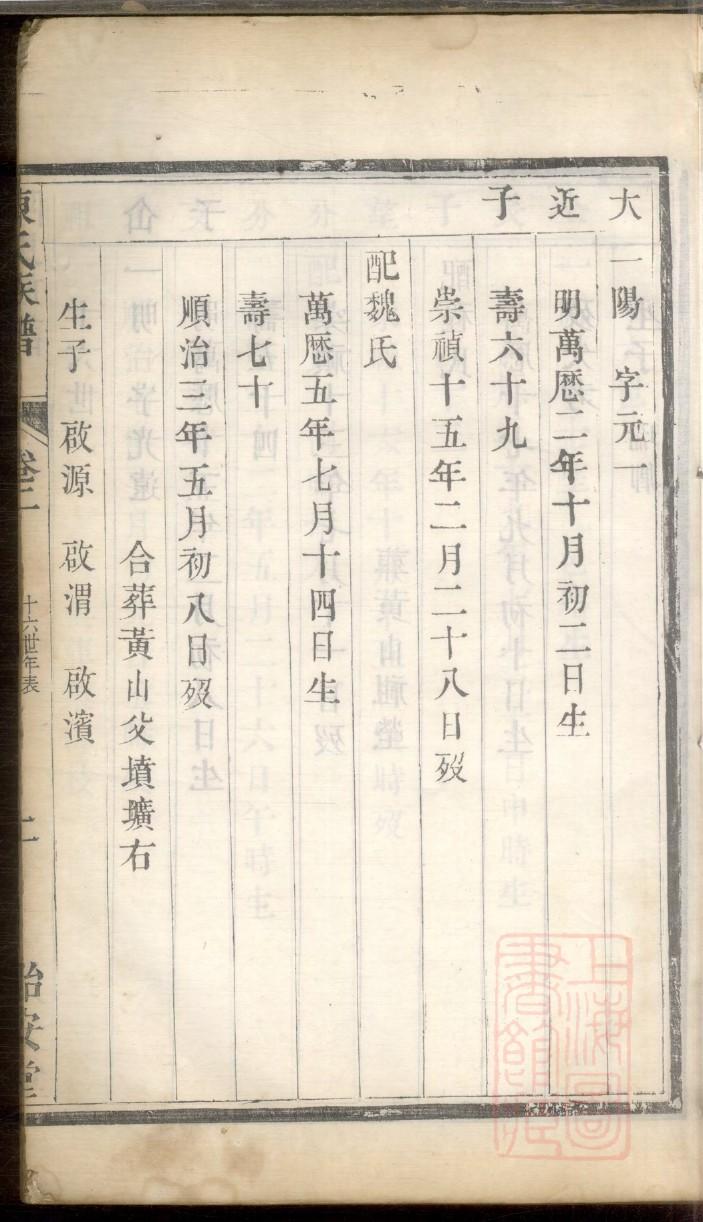 大近子
一陽 字元一
明萬厯二年十月初二日生
壽六十九
崇禎十五年二月二十八日歿
配魏氏
萬厯五年七月十四日生
壽七十
順治三年五月初八日歿
合葬黃山父墳壙右
生子 啟源 啟渭 啟濱
陳氏族譜 卷二 十六世年表 二 治安堂
上海圖書館藏